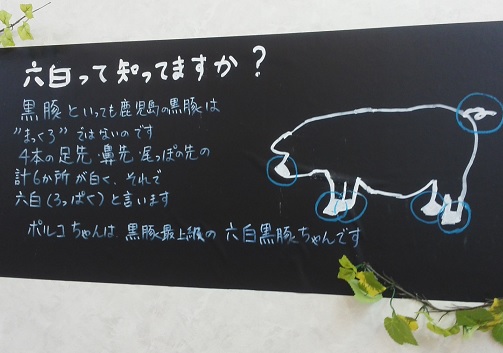 六白って知ってますか？
黒豚といっても鹿児島の黒豚は
"まっくろ"ではないのです
4本の足先・鼻先・尾っぽの先の
計6か所が白く、それで
六白(ろっぱく)と言います
ポルコちゃんは黒豚最上級の六白黒豚ちゃんです